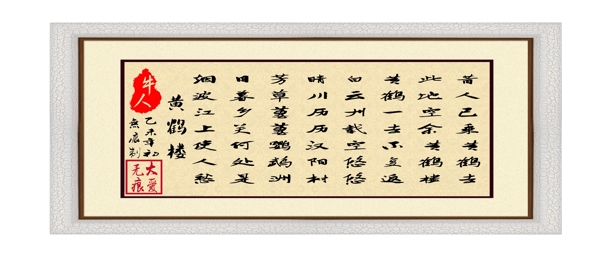 昔人已乘黄鹤去
此地空余黄鹤楼
黄鹤一去不复返
白云千载空悠悠
晴川历历汉阳树
芳草萋萋鹦鹉洲
日暮乡关何处是
烟波江上使人愁
黄鹤楼
乙未年初
無痕制
牛人
大爱
无痕